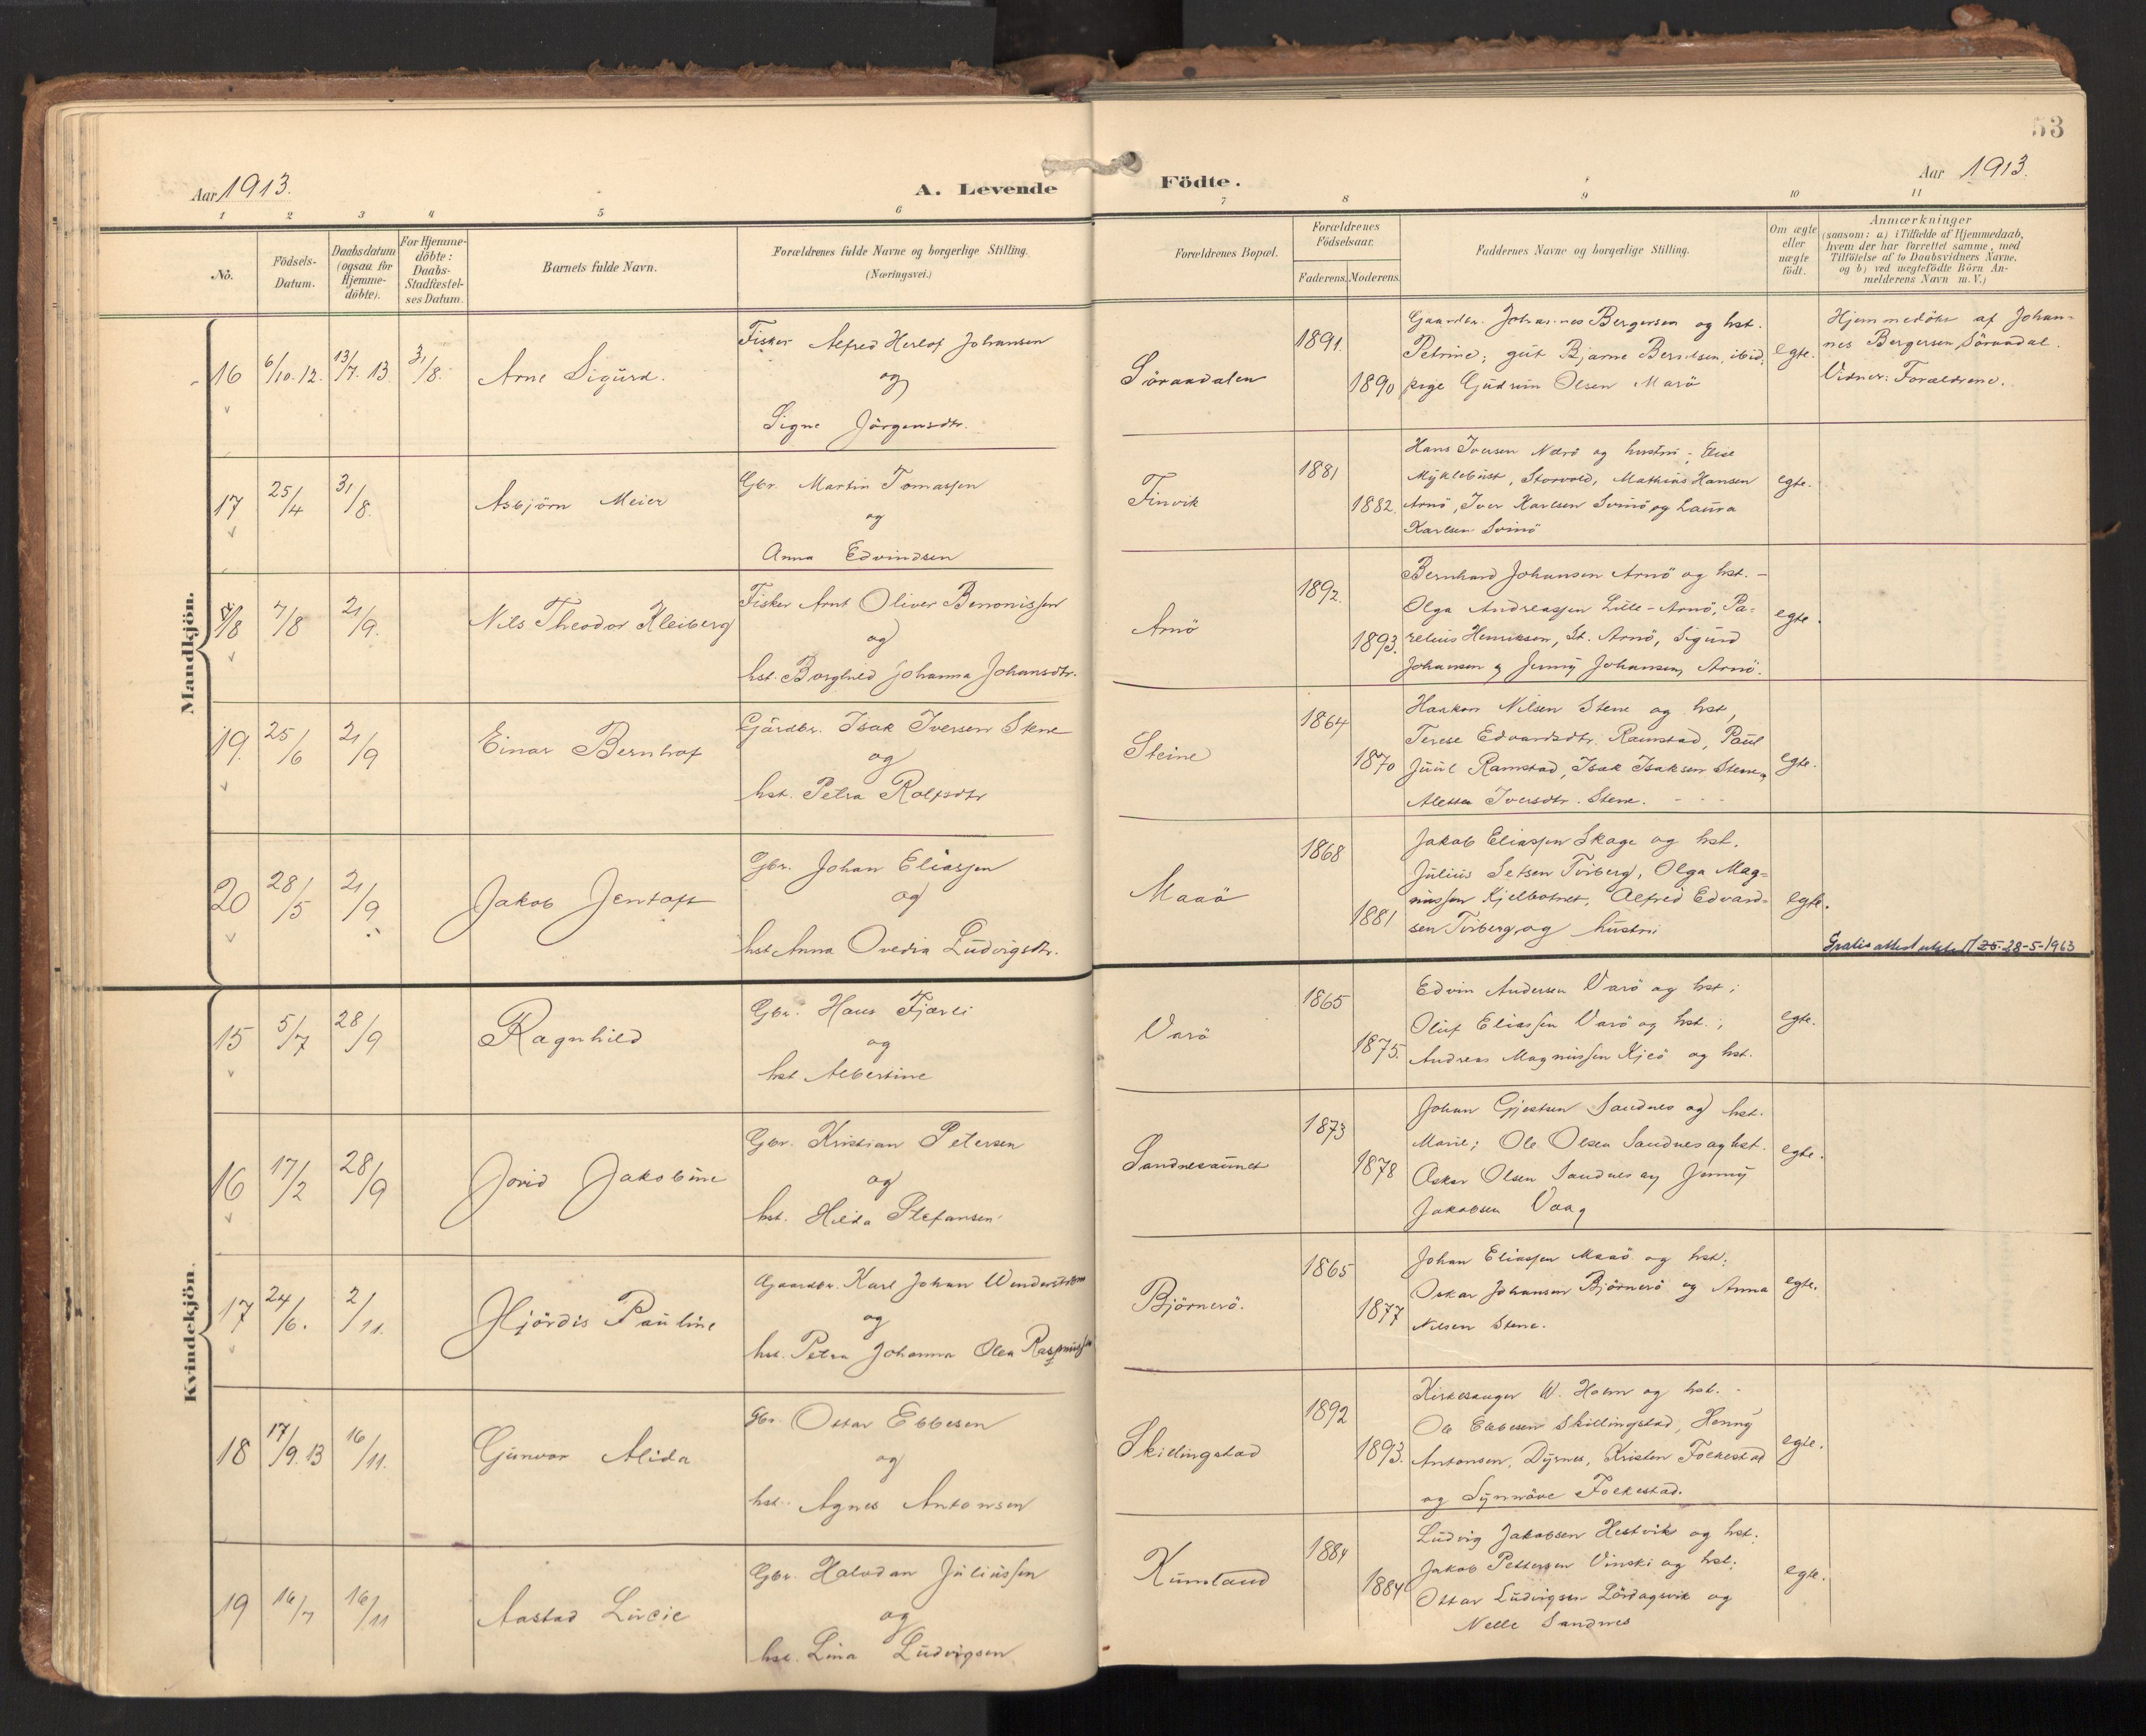 53
Aar 1913.
A. Levende
Födte.
Aar 1913.
1 2 3 4 5 6 7 8 9 10 11
No.
Födsels-
Datum.
Daabsdatum
(ogsaa for
Hjemme-
döbte).
For Hjemme-
döbte:
Daabs-
Stadfæstel-
ses Datum.
Barnets fulde Navn.
Forældrenes fulde Navne og borgerlige Stilling.
(Næringsvei.)
Forældrenes Bopæl.
Forældrenes
Födselsaar.
Faderens. Moderens.
Faddernes Navne og borgerlige Stilling.
Om ægte
eller
uægte
födt.
Anmærkninger
(saasom: a) i Tilfælde af Hjemmedaab,
hvem der har forrettet samme, med
Tilföielse af to Daabsvidners Navne,
og b) ved uægtefödte Börn An-
melderens Navn m. V.)
Mandkjön.
16
6/10.12.
13/7.13
31/8.
Arne Sigurd.
Fisker Alfred Herlof Johansen
og
Signe Jörgensdtr.
Söraadalen
1891.
1890
Gaardbr. Johannes Bergersen og hst.
Petrine; gut Bjarne Berntsen, ibid,
pige Gudrun Olsen Maaö
egte.
Hjemmedöbt af Johan-
nes Bergersen, Söraadal.
Vidner: Forældrene.
17
25/4
31/8.
Asbjörn Meier
Gbr. Martin Tomassen
og
Anna Edvindsen
Finvik
1881
1882.
Hans Iversen Nærö og hustru; Elise
Myklebust, Storvold, Mathias Hansen
Arnö, Iver Karlsen Svinö og Laura
Karlsen Svinö
egte.
18
7/8
21/9.
Nils Theodor Kleiberg
Fisker Arnt Oliver Benonissen
og
hst. Borghild Johanna Johansdtr.
Arnö
1892.
1893.
Bernhard Johansen Arnö og hst. -
Olga Andreassen Lille-Arnö, Pa-
relius Henriksen, St. Arnö, Sigurd
Johansen og Jenny Johansen, Arnö.
egte.
19.
25/6
21/9
Einar Bernhof
Gårdbr. Isak Iversen Stene
og
hst. Petra Rolfsdtr
Steine
1864
1870
Haakon Nilsen Stene og hst,
Terese Edvardsdtr. Ramstad, Paul
Juul Ramstad, Isak Isaksen Stene,
Aletta Iversdtr. Stene.
egte.
20
28/5
21/9
Jakob Jentoft
Gbr. Johan Eliassen
og
hst Anna Ovedia Ludvigsdtr.
Maaö
1868
1881
Jakob Eliassen Skage og hst.
Julius Setsen Tviberg, Olga Mag-
nussen Kjelbotnet, Alfred Edvard-
sen Tviberg og hustru
egte.
Gratis attest utstedt 28-5-1963
Kvindekjön.
15
5/7
28/9
Ragnhild
Gbr. Hans Fjærli
og
hst Albertine
Varö
1865
1875.
Edvin Andersen Varö og hst;
Oluf Eliassen Varö og hst.;
Andreas Magnussen Kjeö og hst.
egte.
16
17/2
28/9
Jorid Jakobine
Gbr. Kristian Petersen
og
hst. Hilda Stefansen
Sandnesaunet
1873
1878
Johan Gjertsen Sandnes og hst.
Marie; Ole Olsen Sandnes og hst.
Oskar Olsen Sandnes og Jenny
Jakobsen Vaag
egte.
17
24/6.
2/11.
Hjördis Pauline
Gaardbr. Karl Johan Wenderström
og
hst. Petra Johanna Olea Rasmussen
Björnerö.
1865
1877
Johan Eliassen Maaö og hst;
Oskar Johansen Björnerö og Anna
Nilsen Stene.
egte.
18
17/9.13
16/11.
Gunvor Alida
Gbr. Ottar Ebbesen
og
hst. Agnes Antonsen
Skillingstad
1892
1893.
Kirkesanger W. Holm og hst. -
Ole Ebbesen Skillingstad, Henny
Antonsen, Dyrnes, Kristen Folkestad
og Synnöve Folkestad.
egte.
19
16/7
16/11
Aastad Lucie
Gbr. Halvdan Juliussen
og
hst. Lina Ludvigsen
Kumland
1884
1884
Ludvig Jakobsen Hestvik og hst;
Jakob Pettersen Vinski og hst;
Ottar Ludvigsen Lördagsvik og
Nelle Sandnes
egte.